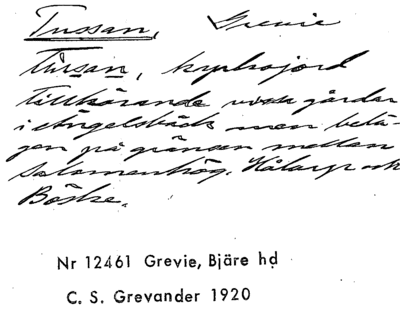 Tussan, Grevie
Tursan, kyrkojord
tillhörande vissa gårdar
i Ängelsbäck men belä-
gen på gränsen mellan
Salomonhög, Hålarp och
Böske.
Nr 12461 Grevie, Bjäre hd
C. S. Grevander 1920